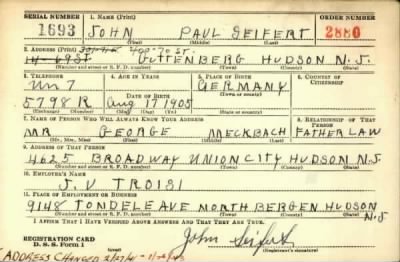 SERIAL NUMBER 1. NAME (Print) ORDER NUMBER
1693 JOHN PAUL SEIFERT 2880
(First) (Middle) (Last)
2. ADDRESS (Print) 400-70 ST.
14-69 ST GUTTENBERG HUDSON N.J.
(Number and street or R. F. D. number) (Town) (County) (State)
3. TELEPHONE 4. AGE IN YEARS 5. PLACE OF BIRTH 6. COUNTRY OF CITIZENSHIP
Un 7 GERMANY
DATE OF BIRTH (Town or county)
5798 R Aug 17 1905
(Exchange) (Number) (Mo.) (Day) (Yr.) (State or country)
7. NAME OF PERSON WHO WILL ALWAYS KNOW YOUR ADDRESS 8. RELATIONSHIP OF THAT PERSON
MR GEORGE MECKBACH FATHER LAW
(Mr., Mrs., Miss) (First) (Middle) (Last)
9. ADDRESS OF THAT PERSON
4625 BROADWAY UNION CITY HUDSON N.J.
(Number and street or R. F. D. number) (Town) (County) (State)
10. EMPLOYER'S NAME
J. V TROISI
11. PLACE OF EMPLOYMENT OR BUSINESS
9148 TONDELE AVE NORTH BERGEN HUDSON N.J.
(Number and street or R. F. D. number) (Town) (County) (State)
I AFFIRM THAT I HAVE VERIFIED ABOVE ANSWERS AND THAT THEY ARE TRUE.
REGISTRATION CARD
D. S. S. Form 1
John Seifert
(Registrant's signature)
ADDRESS CHANGED 2/27/41